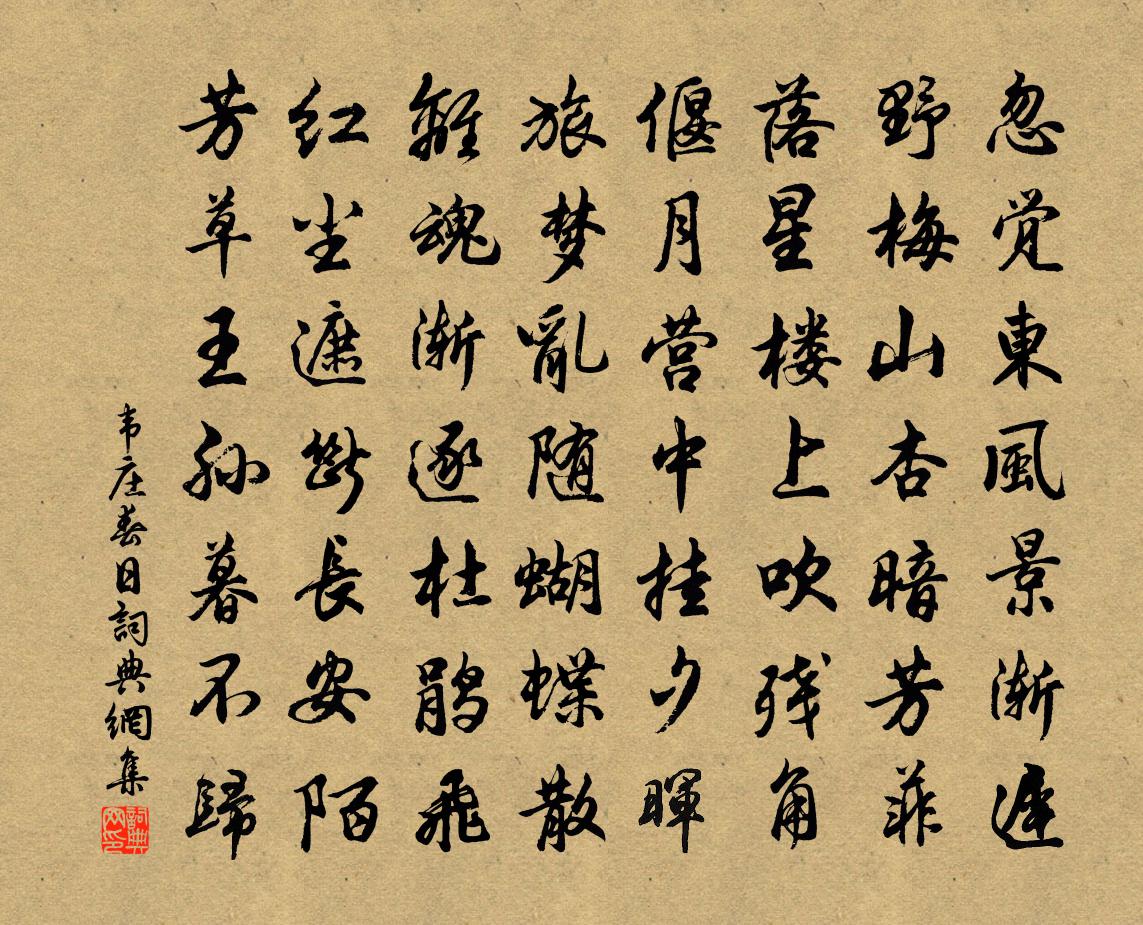 忽觉東風景渐遲
野梅山杏暗芳菲
落星楼上吹残角
偃月营中挂夕暉
旅梦亂随蝴蝶散
離魂渐逐杜鹃飛
红尘遮斷長安陌
芳草王孙暮不歸
韦庄春日詞典網集
詞典网印